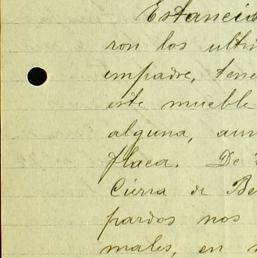 Estancia
ron los ulti
empadre, tene
este mueble
alguna, aun
flaca. De
Cierra de Be
pardos nos
males, en